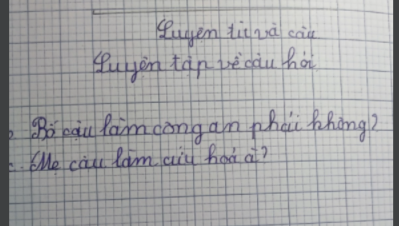 Luyện từ và câu
Luyện tập về câu hỏi
Bố cậu làm công an phải không?
Mẹ cậu làm cứu hoả à?